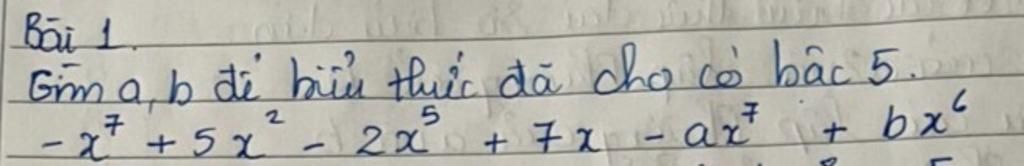 Bài 1.
Tìm a, b để biểu thức đã cho có bậc 5.
-x⁷ + 5x² - 2x⁵ + 7x - ax⁷ + bx⁶